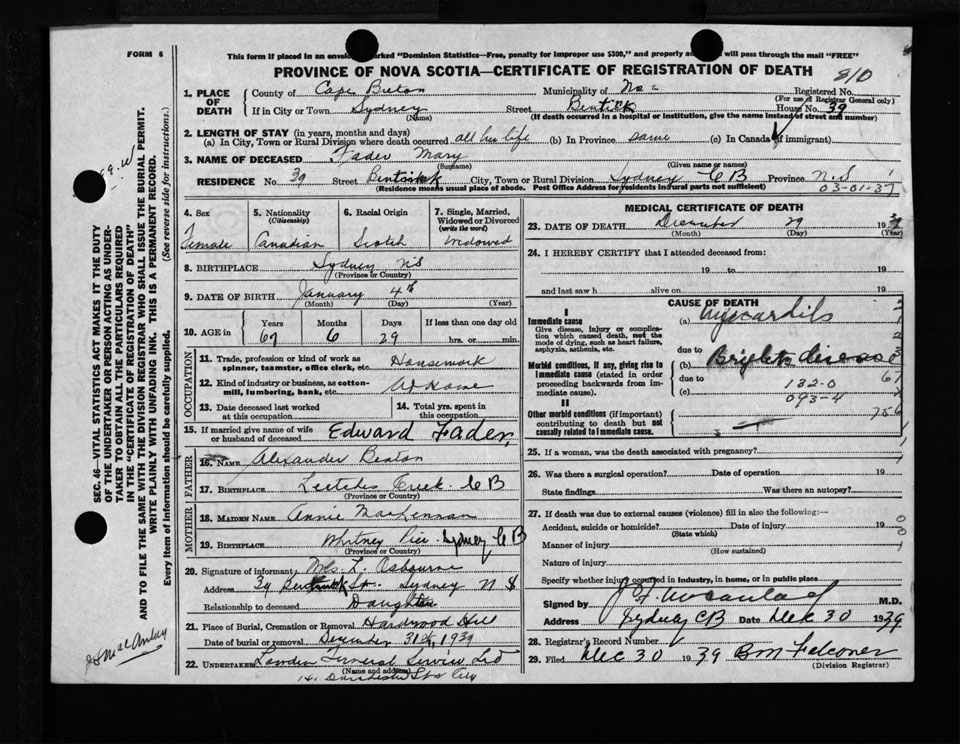 FORM 6
This form if placed in an envelope marked "Dominion Statistics—Free, penalty for improper use $300," and properly will pass through the mail "FREE"
PROVINCE OF NOVA SCOTIA—CERTIFICATE OF REGISTRATION OF DEATH
810
1. PLACE OF DEATH
County of Cape Breton Municipality of Registered No.
(For use of Registrar General only)
If in City or Town Sydney Street Bentick House No. 39
(Name) (If death occurred in a hospital or institution, give the name instead of street and number)
2. LENGTH OF STAY (in years, months and days)
(a) In City, Town or Rural Division where death occurred all her life (b) In Province same (c) In Canada (if immigrant)
3. NAME OF DECEASED Fader Mary
(Surname) (Given name or names)
RESIDENCE No. 39 Street Bentick City, Town or Rural Division Sydney C B Province N.S
(Residence means usual place of abode. Post Office Address for residents in rural parts not sufficient)
03-01-37
4. Sex
Female
5. Nationality
(Citizenship)
Canadian
6. Racial Origin
Scotch
7. Single, Married, Widowed or Divorced
(write the word)
Widowed
8. BIRTHPLACE Sydney NS
(Province or Country)
9. DATE OF BIRTH January 4th
(Month) (Day) (Year)
10. AGE in Years Months Days If less than one day
67 6 29 hrs. or min.
OCCUPATION
11. Trade, profession or kind of work as spinner, teamster, office clerk, etc. Housework
12. Kind of industry or business, as cotton-mill, lumbering, bank, etc. At Home
13. Date deceased last worked at this occupation
14. Total yrs. spent in this occupation
15. If married give name of wife or husband of deceased Edward Fader
FATHER
16. NAME Alexander Beaton
17. BIRTHPLACE Leitches Creek. C B
(Province or Country)
MOTHER
18. MAIDEN NAME Annie MacLennan
19. BIRTHPLACE Whitney Pier. Sydney C B
(Province or Country)
20. Signature of informant Mrs. L. Osbourne
Address 39 Bentick St. Sydney N S
Relationship to deceased Daughter
21. Place of Burial, Cremation or Removal Hardwood Hill
Date of burial or removal December 31st, 1939
22. UNDERTAKER Funeral Service Ltd
(Name and address)
14. Dorchester St. City
MEDICAL CERTIFICATE OF DEATH
23. DATE OF DEATH December 29 1939
(Month) (Day) (Year)
24. I HEREBY CERTIFY that I attended deceased from:
19 to 19
and last saw h alive on 19
CAUSE OF DEATH
I
Immediate cause
Give disease, injury or complication which caused death, not the mode of dying, such as heart failure, asphyxia, asthenia, etc.
(a) Myocarditis
due to
Morbid conditions, if any, giving rise to immediate cause (stated in order proceeding backwards from immediate cause).
(b) Brights disease
due to
132-0
(c)
093-4
II
Other morbid conditions (if important) contributing to death but not causally related to immediate cause.
756
25. If a woman, was the death associated with pregnancy?
26. Was there a surgical operation? Date of operation 19
State findings Was there an autopsy?
27. If death was due to external causes (violence) fill in also the following:—
Accident, suicide or homicide? Date of injury 19
(State which)
Manner of injury
(How sustained)
Nature of injury
Specify whether injury occurred in industry, in home, or in public place
Signed by M.D.
Address Sydney CB Date Dec 30 1939
28. Registrar's Record Number
29. Filed Dec 30 1939 B M Falconer
(Division Registrar)
SEC. 46—VITAL STATISTICS ACT MAKES IT THE DUTY OF THE UNDERTAKER OR PERSON ACTING AS UNDERTAKER TO OBTAIN ALL THE PARTICULARS REQUIRED IN THE "CERTIFICATE OF REGISTRATION OF DEATH" AND TO FILE THE SAME WITH THE DIVISION REGISTRAR WHO SHALL ISSUE THE BURIAL PERMIT.
WRITE PLAINLY WITH UNFADING INK. THIS IS A PERMANENT RECORD.
Every item of information should be carefully supplied. (See reverse side for instructions.)